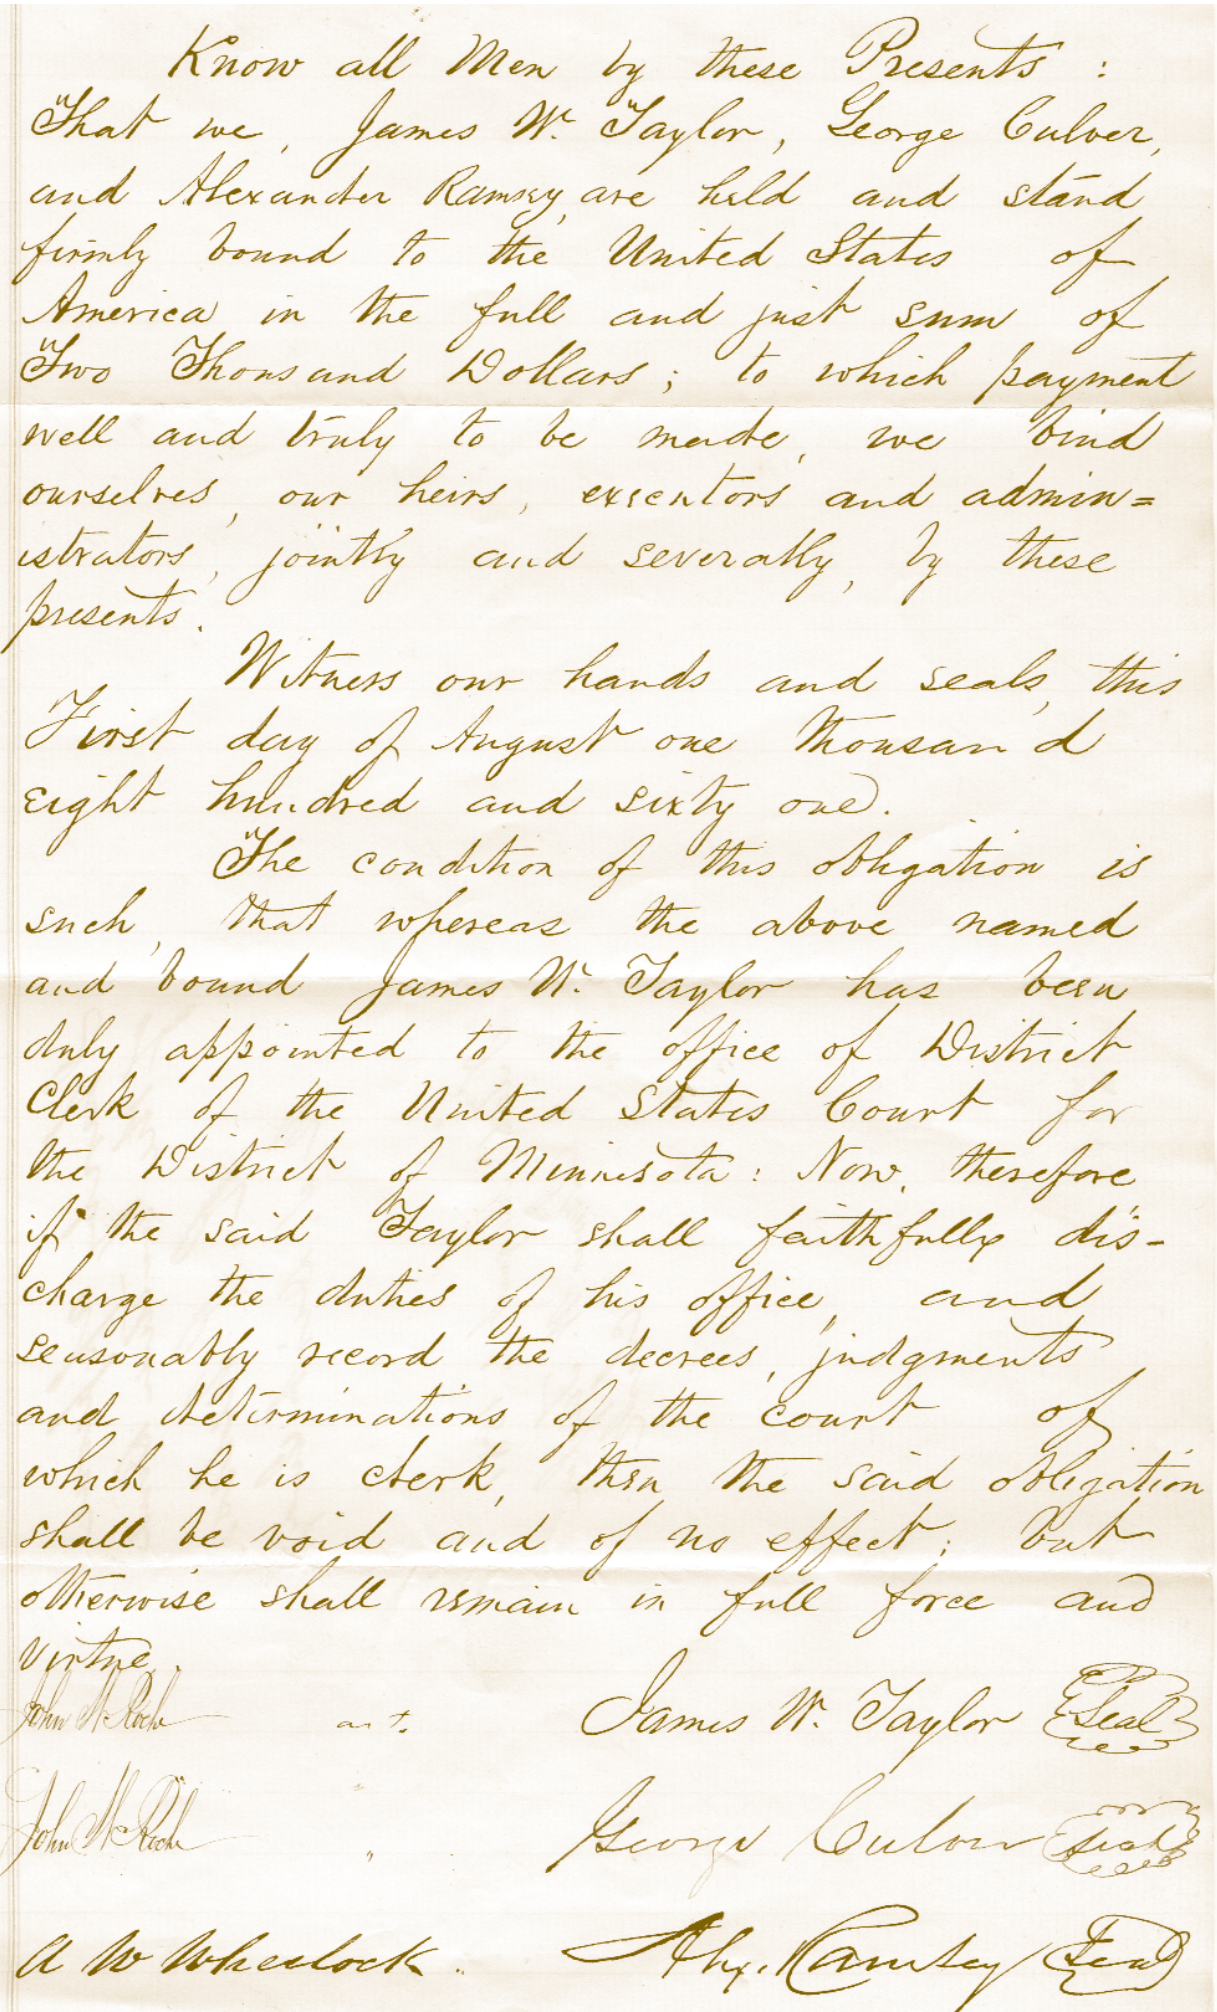 Know all Men by these Presents :
That we, James W. Taylor, George Culver,
and Alexander Ramsey, are held and stand
firmly bound to the United States of
America in the full and just sum of
Two Thousand Dollars ; to which payment
well and truly to be made, we bind
ourselves, our heirs, executors and admin=
istrators, jointly and severally, by these
presents.
Witness our hands and seals, this
First day of August one thousand
eight hundred and sixty one.
The condition of this obligation is
such, that whereas the above named
and bound James W. Taylor has been
duly appointed to the office of District
Clerk of the United States Court for
the District of Minnesota : Now, therefore
if the said Taylor shall faithfully dis-
charge the duties of his office, and
seasonably record the decrees, judgments
and determinations of the court of
which he is clerk, then the said obligation
shall be void and of no effect ; but
otherwise shall remain in full force and
virtue.
John James W. Taylor Seal
John " George Culver Seal
A W Wheelock " Alex. Ramsey Seal